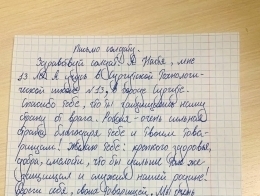 Письмо солдату.
Здравствуй солдат. Я Настя, мне
13 лет. Я учусь в Сургутской Технологи-
ческой школе №13, в городе Сургут.
Спасибо тебе, что ты защищаешь нашу
страну от врага. Россия - очень сильная
страна благодаря тебе и твоим това-
рищам! Желаю тебе: крепкого здоровья,
добра, смелости, что бы
и нашей родине!
себя, своих товарищей. Мы очень